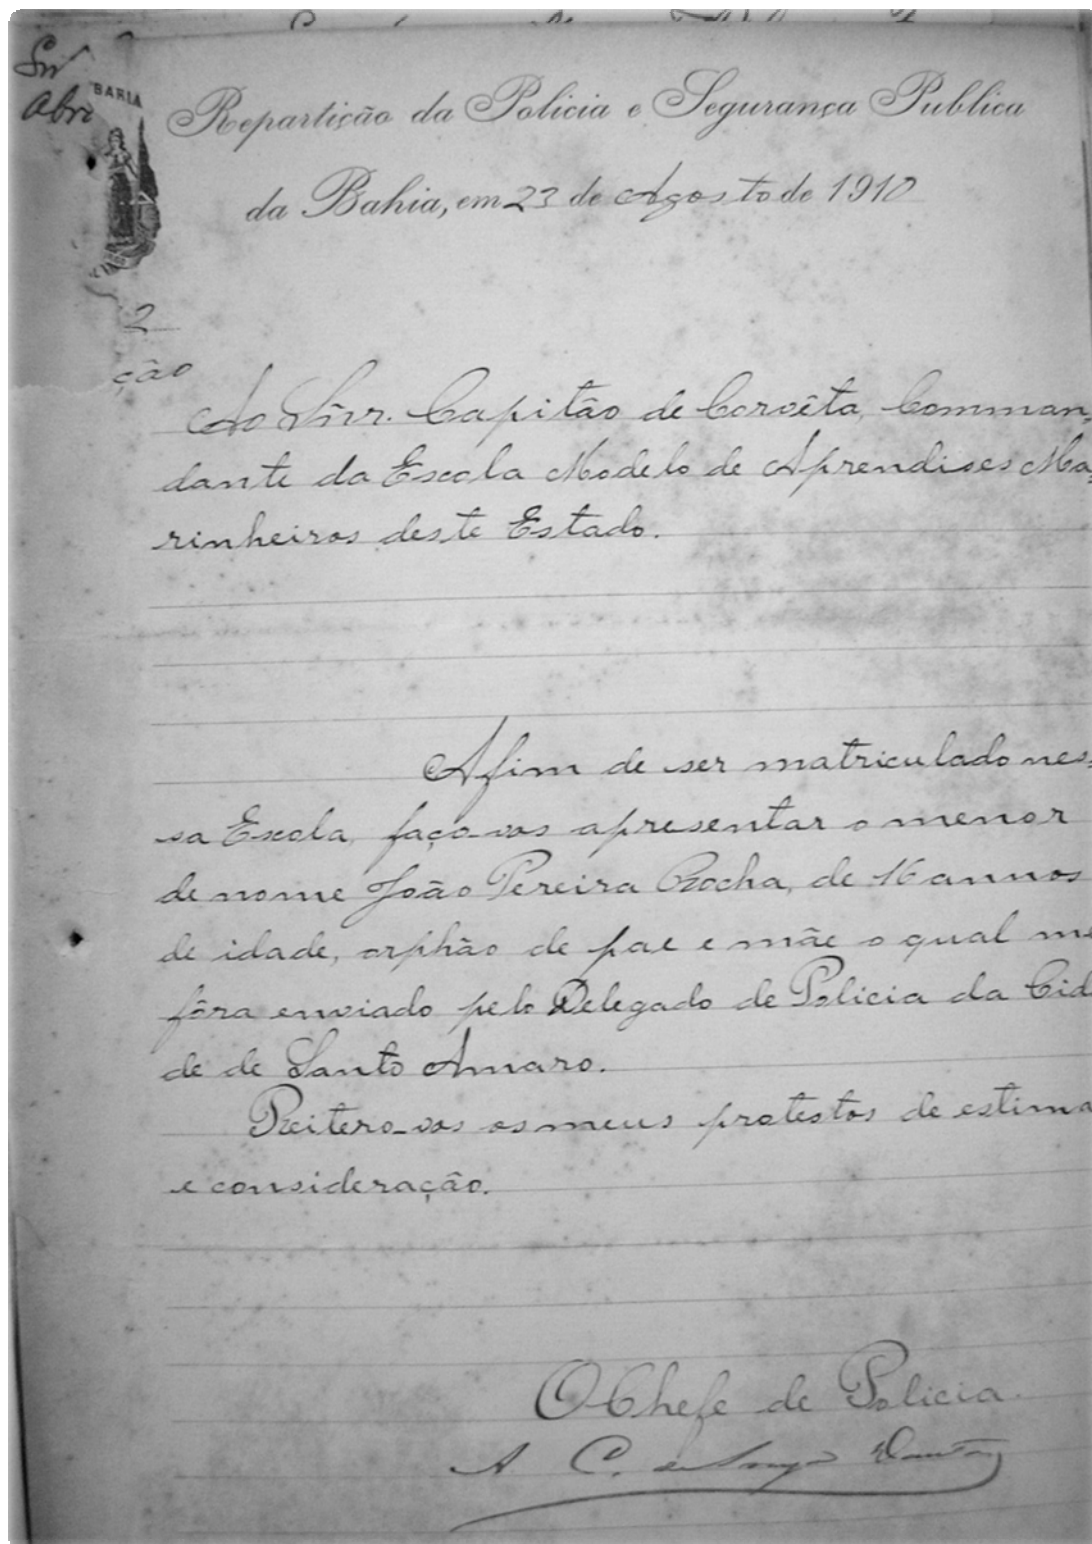 Snr
Abr
BAHIA
Repartição da Policia e Segurança Publica
da Bahia, em 23 de Agosto de 1910
2
ção
Ao Snr. Capitão de Corvêta, Comman-
dante da Escola Modelo de Aprendises Ma-
rinheiros deste Estado.
Afim de ser matriculado nes-
sa Escola, faço-vos apresentar o menor
de nome João Pereira Rocha, de 16 annos
de idade, orphão de pae e mãe o qual me
fôra enviado pelo Delegado de Policia da Cid
de de Santo Amaro.
Reitero-vos os meus protestos de estima
e consideração.
O Chefe de Policia.
A C. de Souza Dantas